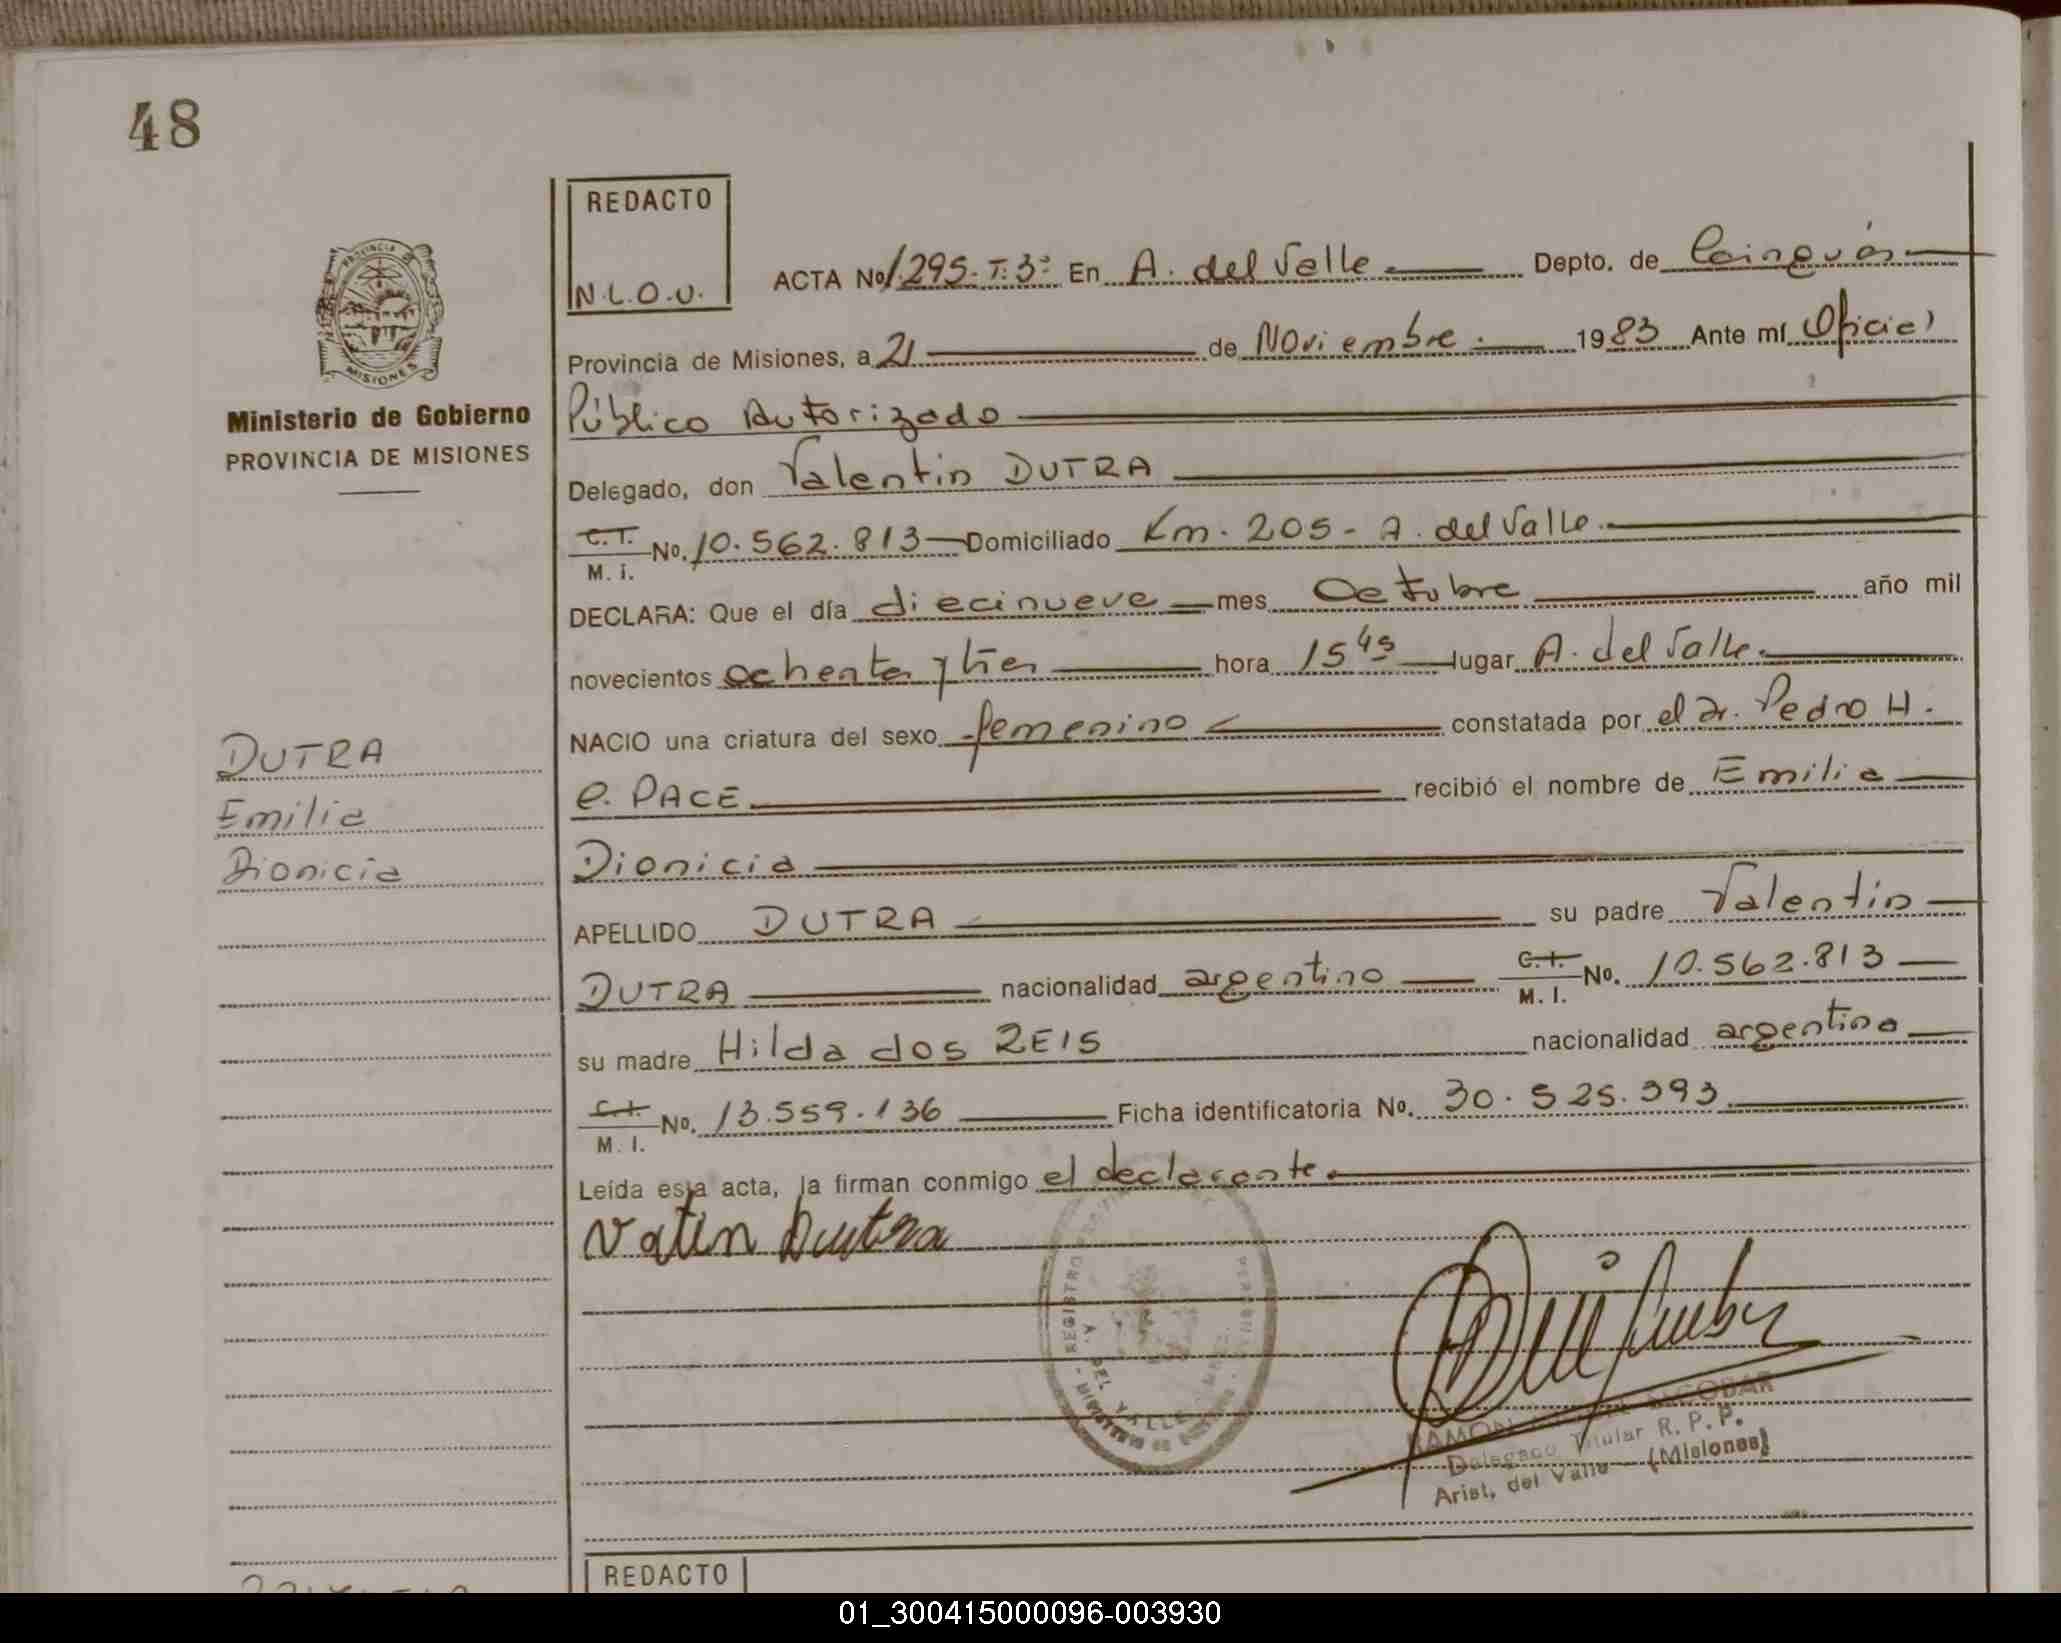 48
REDACTO
N.L.O.U.
ACTA No 1.295-T:3º En A. del Valle Depto. de Cainguás
Provincia de Misiones, a 21 de Noviembre 1983 Ante mí Oficial
Público Autorizado
Delegado, don Valentin DUTRA
C.T. M. i. No. 10.562.813 Domiciliado Km. 205 - A. del Valle.
DECLARA: Que el día diecinueve mes Octubre año mil
novecientos ochenta y tres hora 15 45 lugar A. del Valle.
NACIO una criatura del sexo femenino constatada por el Dr. Pedro H.
e. PACE recibió el nombre de Emilia
Dionicia
APELLIDO DUTRA su padre Valentin
DUTRA nacionalidad argentino C.I. M. I. No. 10.562.813
su madre Hilda dos REIS nacionalidad argentina
C.I. M. I. No. 13.559.136 Ficha identificatoria No. 30.525.393
Leída esta acta, la firman conmigo el declarante.
Vatin Dutra
PROVINCIA
MISIONES
Ministerio de Gobierno
PROVINCIA DE MISIONES
DUTRA
Emilia
Dionicia
REGISTRO
A. DEL VALLE
MINISTERIO DE
RAMON ESCOBAR
Delegado Titular R. P. P.
Arist. del Valle - (Misiones)
REDACTO
01_300415000096-003930